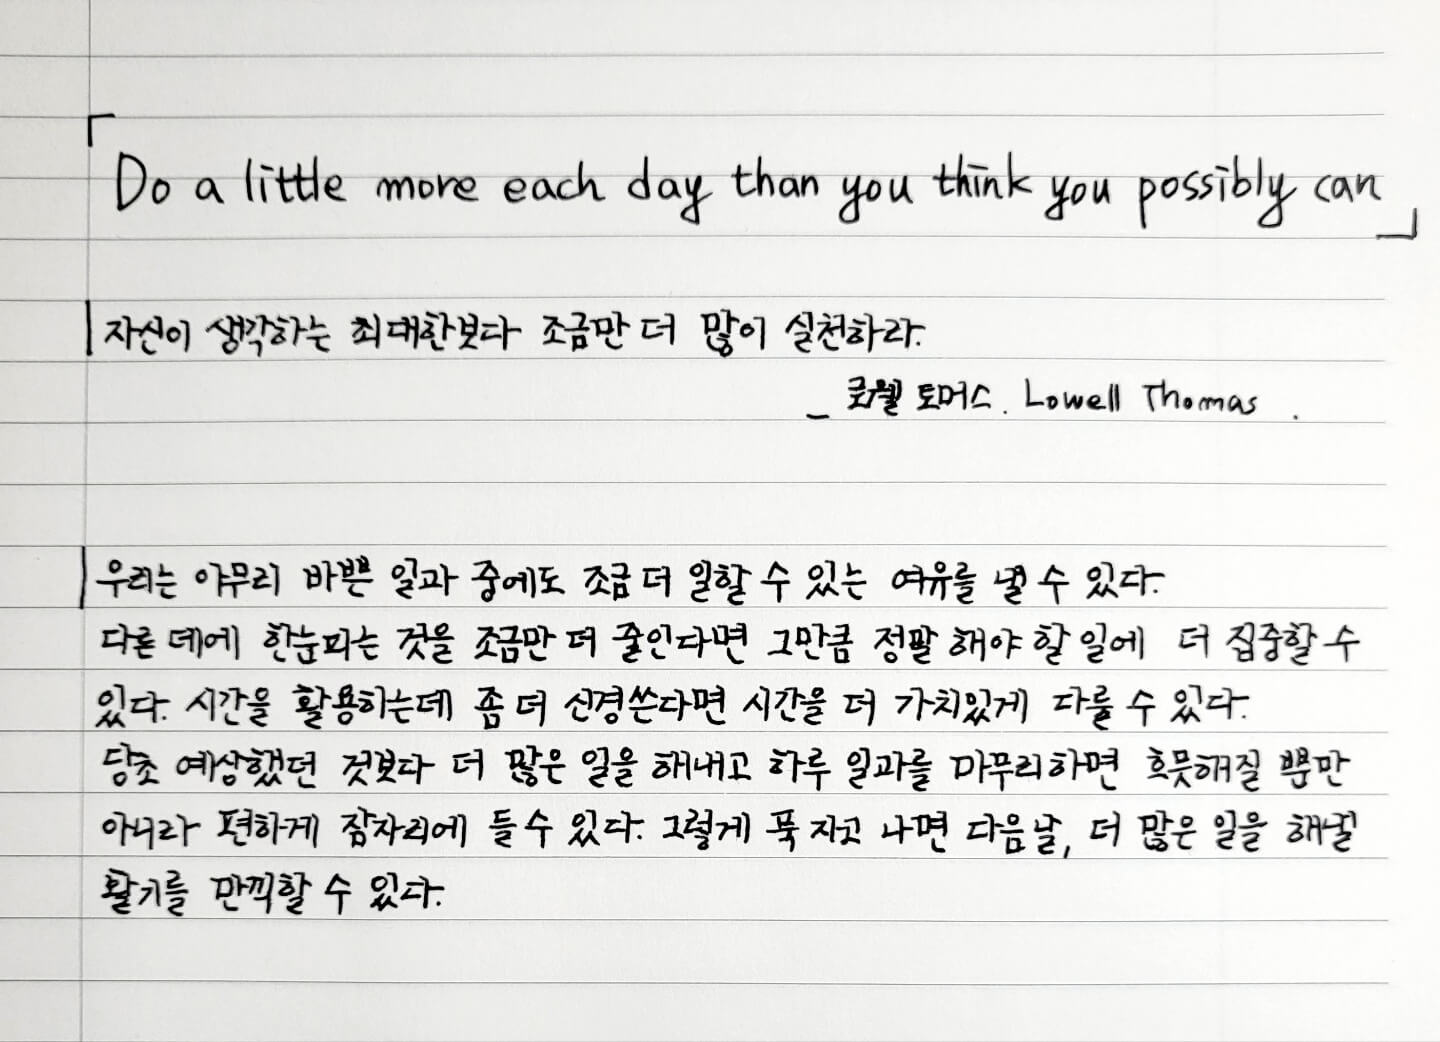 「Do a little more each day than you think you possibly can」
자신이 생각하는 최대한보다 조금만 더 많이 실천하라.
_ 로웰 토머스. Lowell Thomas .
우리는 아무리 바쁜 일과 중에도 조금 더 일할 수 있는 여유를 낼 수 있다.
다른 데에 한눈파는 것을 조금만 더 줄인다면 그만큼 정말 해야 할 일에 더 집중할 수
있다. 시간을 활용하는데 좀 더 신경쓴다면 시간을 더 가치있게 다룰 수 있다.
당초 예상했던 것보다 더 많은 일을 해내고 하루 일과를 마무리하면 흐뭇해질 뿐만
아니라 편하게 잠자리에 들 수 있다. 그렇게 푹 자고 나면 다음날, 더 많은 일을 해낼
활기를 만끽할 수 있다.